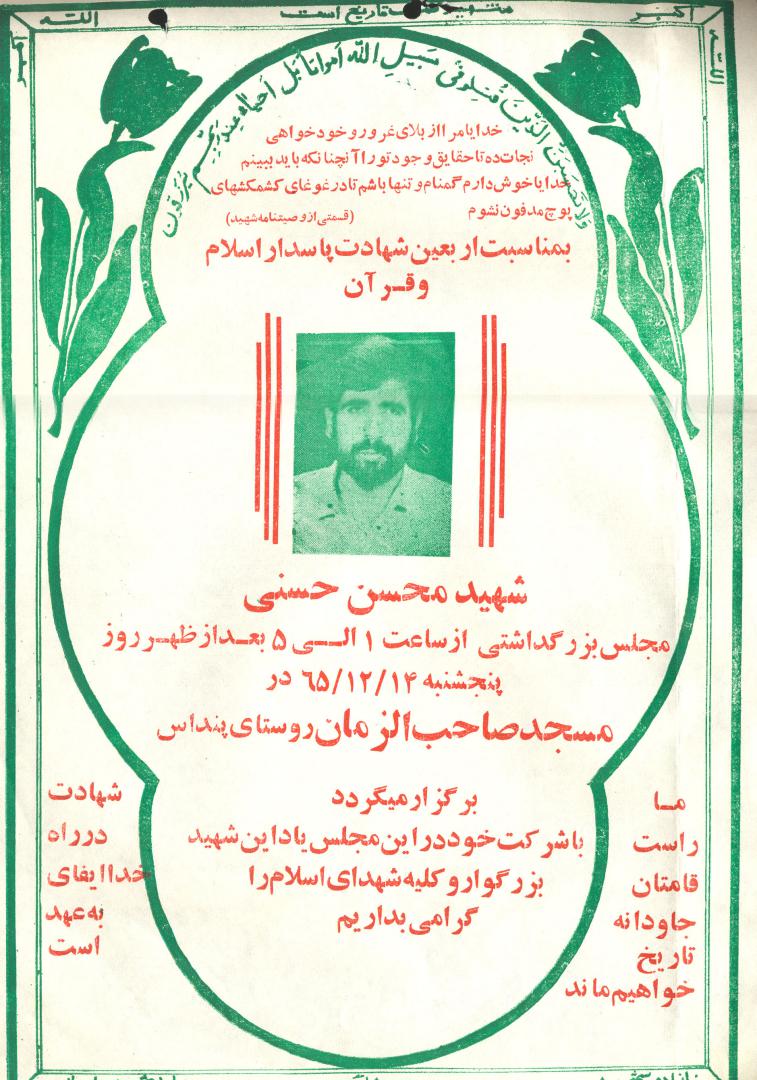 الله اکبر
شهید تاریخ است
الله
ولا تحسبن الذین قتلوا فی سبیل الله امواتا بل احیاء عند ربهم یرزقون
خدایا مرا از بلای غرور و خودخواهی
نجات ده تا حقایق وجود تو را آنچنانکه باید ببینم
خدایا خوش دارم گمنام و تنها باشم تا در غوغای کشمکشهای
پوچ مدفون نشوم (قسمتی از وصیتنامه شهید)
بمناسبت اربعین شهادت پاسدار اسلام
و قرآن
شهید محسن حسنی
مجلس بزرگداشتی از ساعت ۱ الی ۵ بعد از ظهر روز
پنجشنبه ۶۵/۱۲/۱۴ در
مسجد صاحب الزمان روستای پنداس
برگزار میگردد
با شرکت خود در این مجلس یاد این شهید
بزرگوار و کلیه شهدای اسلام را
گرامی بداریم
ما
راست
قامتان
جاودانه
تاریخ
خواهیم ماند
شهادت
در راه
خدا ایفای
به عهد
است